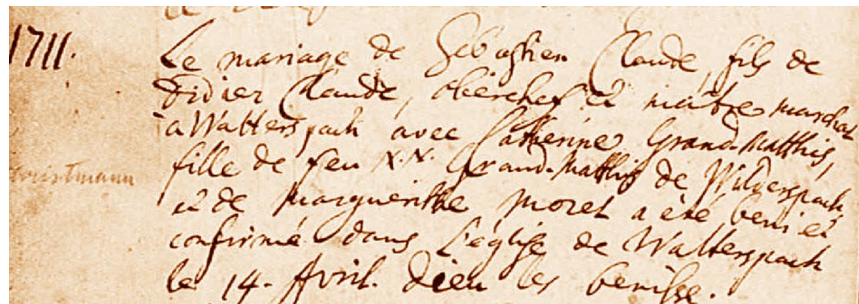 1711.
Le mariage de Sébastien Claude, fils de
Didier Claude, oberchef et maitre marchal
a Watterspach avec Catherine Grand-Matthis,
fille de feu N. N. Grand-Matthis de Wilderspach,
et de marguerithe moret a été beni et
confirmé dans L'église de Watterspach
le 14. Avril. Dieu les benisse.